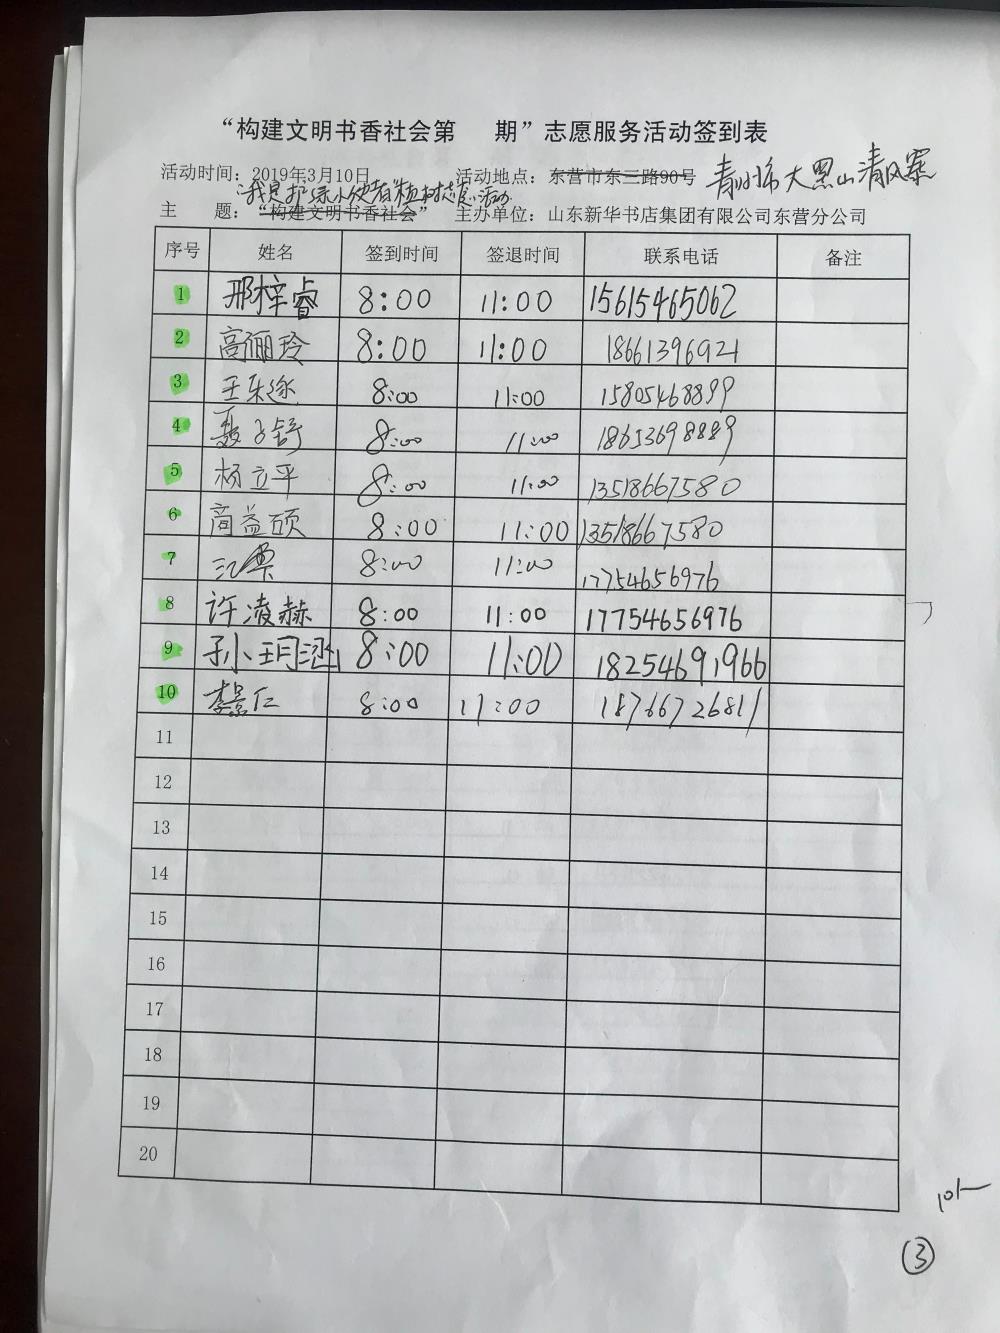 “构建文明书香社会第 期”志愿服务活动签到表
活动时间：2019年3月10日 活动地点：东营市东三路90号 青州市大黑山清风寨
“我是护绿小使者”植树志愿活动
主 题：“构建文明书香社会” 主办单位：山东新华书店集团有限公司东营分公司
序号 姓名 签到时间 签退时间 联系电话 备注
1 邢梓睿 8:00 11:00 15615465062
2 高俪玲 8:00 11:00 18661396921
3 王乐逐 8:00 11:00 15805468899
4 聂子舒 8:00 11:00 18653698889
5 杨立平 8:00 11:00 13518667580
6 高益硕 8:00 11:00 13518667580
7 8:00 11:00 17754656976
8 许凌赫 8:00 11:00 17754656976
9 孙玥涵 8:00 11:00 18254691966
10 李景仁 8:00 11:00 18766726811
11
12
13
14
15
16
17
18
19
20
10个
③